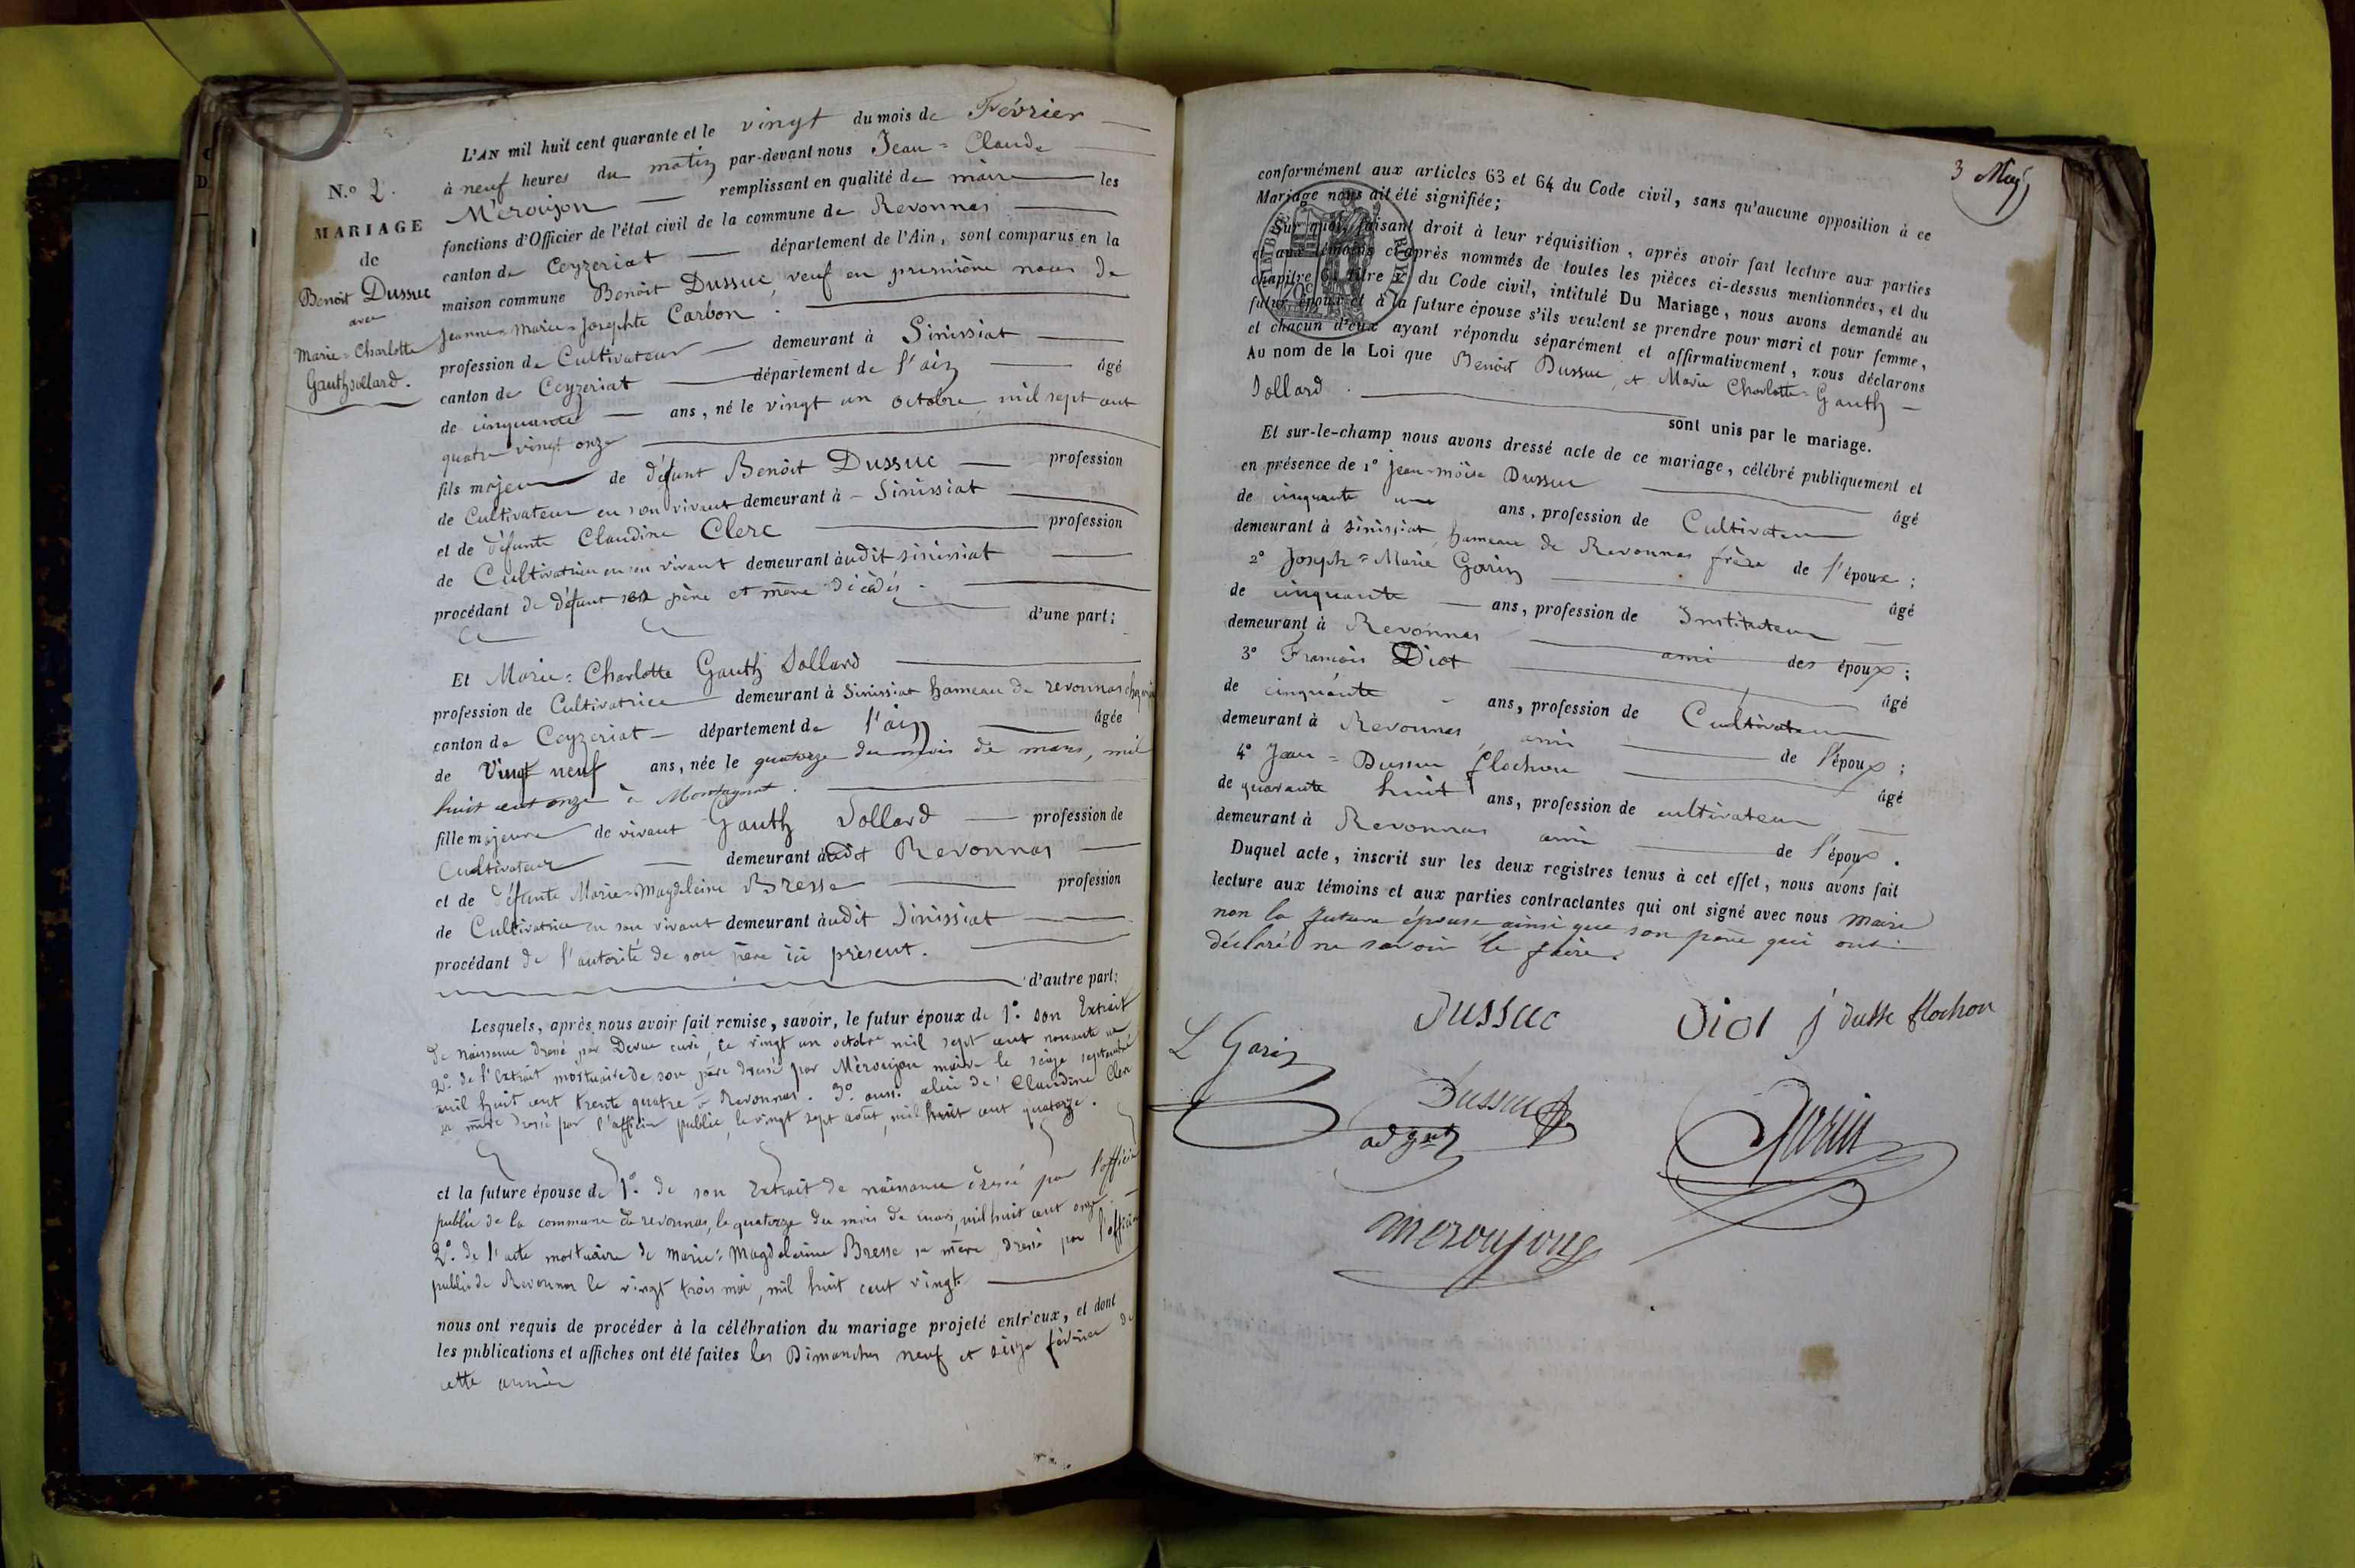 L'AN mil huit cent quarante et le vingt du mois de Février
à neuf heures du matin par-devant nous Jean = Claude
N.o 2.
Méroujon remplissant en qualité de maire les
MARIAGE
fonctions d'Officier de l'état civil de la commune de Revonnas
de
canton de Ceyzeriat département de l'Ain, sont comparus en la
Benoit Dussuc
maison commune Benoit Dussuc, veuf en première noces de
avec
Jeanne = Marie = Josephte Carbon.
Marie = Charlotte
profession de Cultivateur demeurant à Sinissiat
Gauthsollard.
canton de Ceyzeriat département de l'ain âgé
de cinquante ans, né le vingt un octobre mil sept cent
quatre vingt onze
fils majeur de défunt Benoît Dussuc profession
de Cultivateur en son vivant demeurant à Sinissiat
et de défunte Claudine Clerc profession
de Cultivatrice en son vivant demeurant àudit sinissiat
procédant de défunt ses père et mère décédés.
d'une part;
Et Marie = Charlotte Gauth Sollard
profession de Cultivatrice demeurant à Sinissiat hameau de revonnas
canton de Ceyzeriat département de l'ain âgée
de Vingt neuf ans, née le quatorze du mois de mars, mil
huit cent onze à Montagnat.
fille majeure de vivant Gauth Sollard profession de
Cultivateur demeurant àudit Revonnas
et de défunte Marie = Magdeleine Bresse profession
de Cultivatrice en son vivant demeurant àudit Sinissiat
procédant de l'autorité de son père ici présent.
d'autre part;
Lesquels, après nous avoir fait remise, savoir, le futur époux de 1.o son Extrait
de naissance dressé par curé, le vingt un octobre mil sept cent nonante un
2.o de l'extrait mortuaire de son père dressé par Méroujon maire le seize septembre
mil huit cent trente quatre à Revonnas. 3.o aussi celui de Claudine Clerc
sa mère dressé par l'officier public, le vingt sept août, mil huit cent quatorze.
et la future épouse de 1.o de son Extrait de naissance dressé par l'officier
public de la commune de revonnas, le quatorze du mois de mars, mil huit cent onze.
2.o de l'acte mortuaire de marie = Magdeleine Bresse sa mère, dressé par l'officier
public de Revonnas le vingt trois mai, mil huit cent vingt.
nous ont requis de procéder à la célébration du mariage projeté entr'eux, et dont
les publications et affiches ont été faites les Dimanches neuf et seize février de
cette année
3
conformément aux articles 63 et 64 du Code civil, sans qu'aucune opposition à ce
Mariage nous ait été signifiée;
Sur quoi, faisant droit à leur réquisition, après avoir fait lecture aux parties
et aux témoins ci-après nommés de toutes les pièces ci-dessus mentionnées, et du
chapitre 6, titre v du Code civil, intitulé Du Mariage, nous avons demandé au
futur époux et à la future épouse s'ils veulent se prendre pour mari et pour femme,
et chacun d'eux ayant répondu séparément et affirmativement, nous déclarons
Au nom de la Loi que Benoit Dussuc, et Marie Charlotte = Gauth
Sollard. sont unis par le mariage.
Et sur-le-champ nous avons dressé acte de ce mariage, célébré publiquement et
en présence de 1o Jean = moïse Dussuc âgé
de cinquante un ans, profession de Cultivateur
demeurant à sinissiat, hameau de Revonnas frère de l'époux;
2o Joseph = Marie Garin âgé
de cinquante ans, profession de Instituteur
demeurant à Revonnas ami des époux;
3o François Diot âgé
de cinquante ans, profession de Cultivateur
demeurant à Revonnas, ami de l'époux;
4o Jean = Dussuc flochon âgé
de quarante huit ans, profession de cultivateur
demeurant à Revonnas ami de l'époux.
Duquel acte, inscrit sur les deux registres tenus à cet effet, nous avons fait
lecture aux témoins et aux parties contractantes qui ont signé avec nous maire
non la future épouse, ainsi que son père qui ont
déclaré ne savoir le faire.
Dussuc Diot j dusse flochon
Garin
Dussuc
adjoint Garin
meroujong